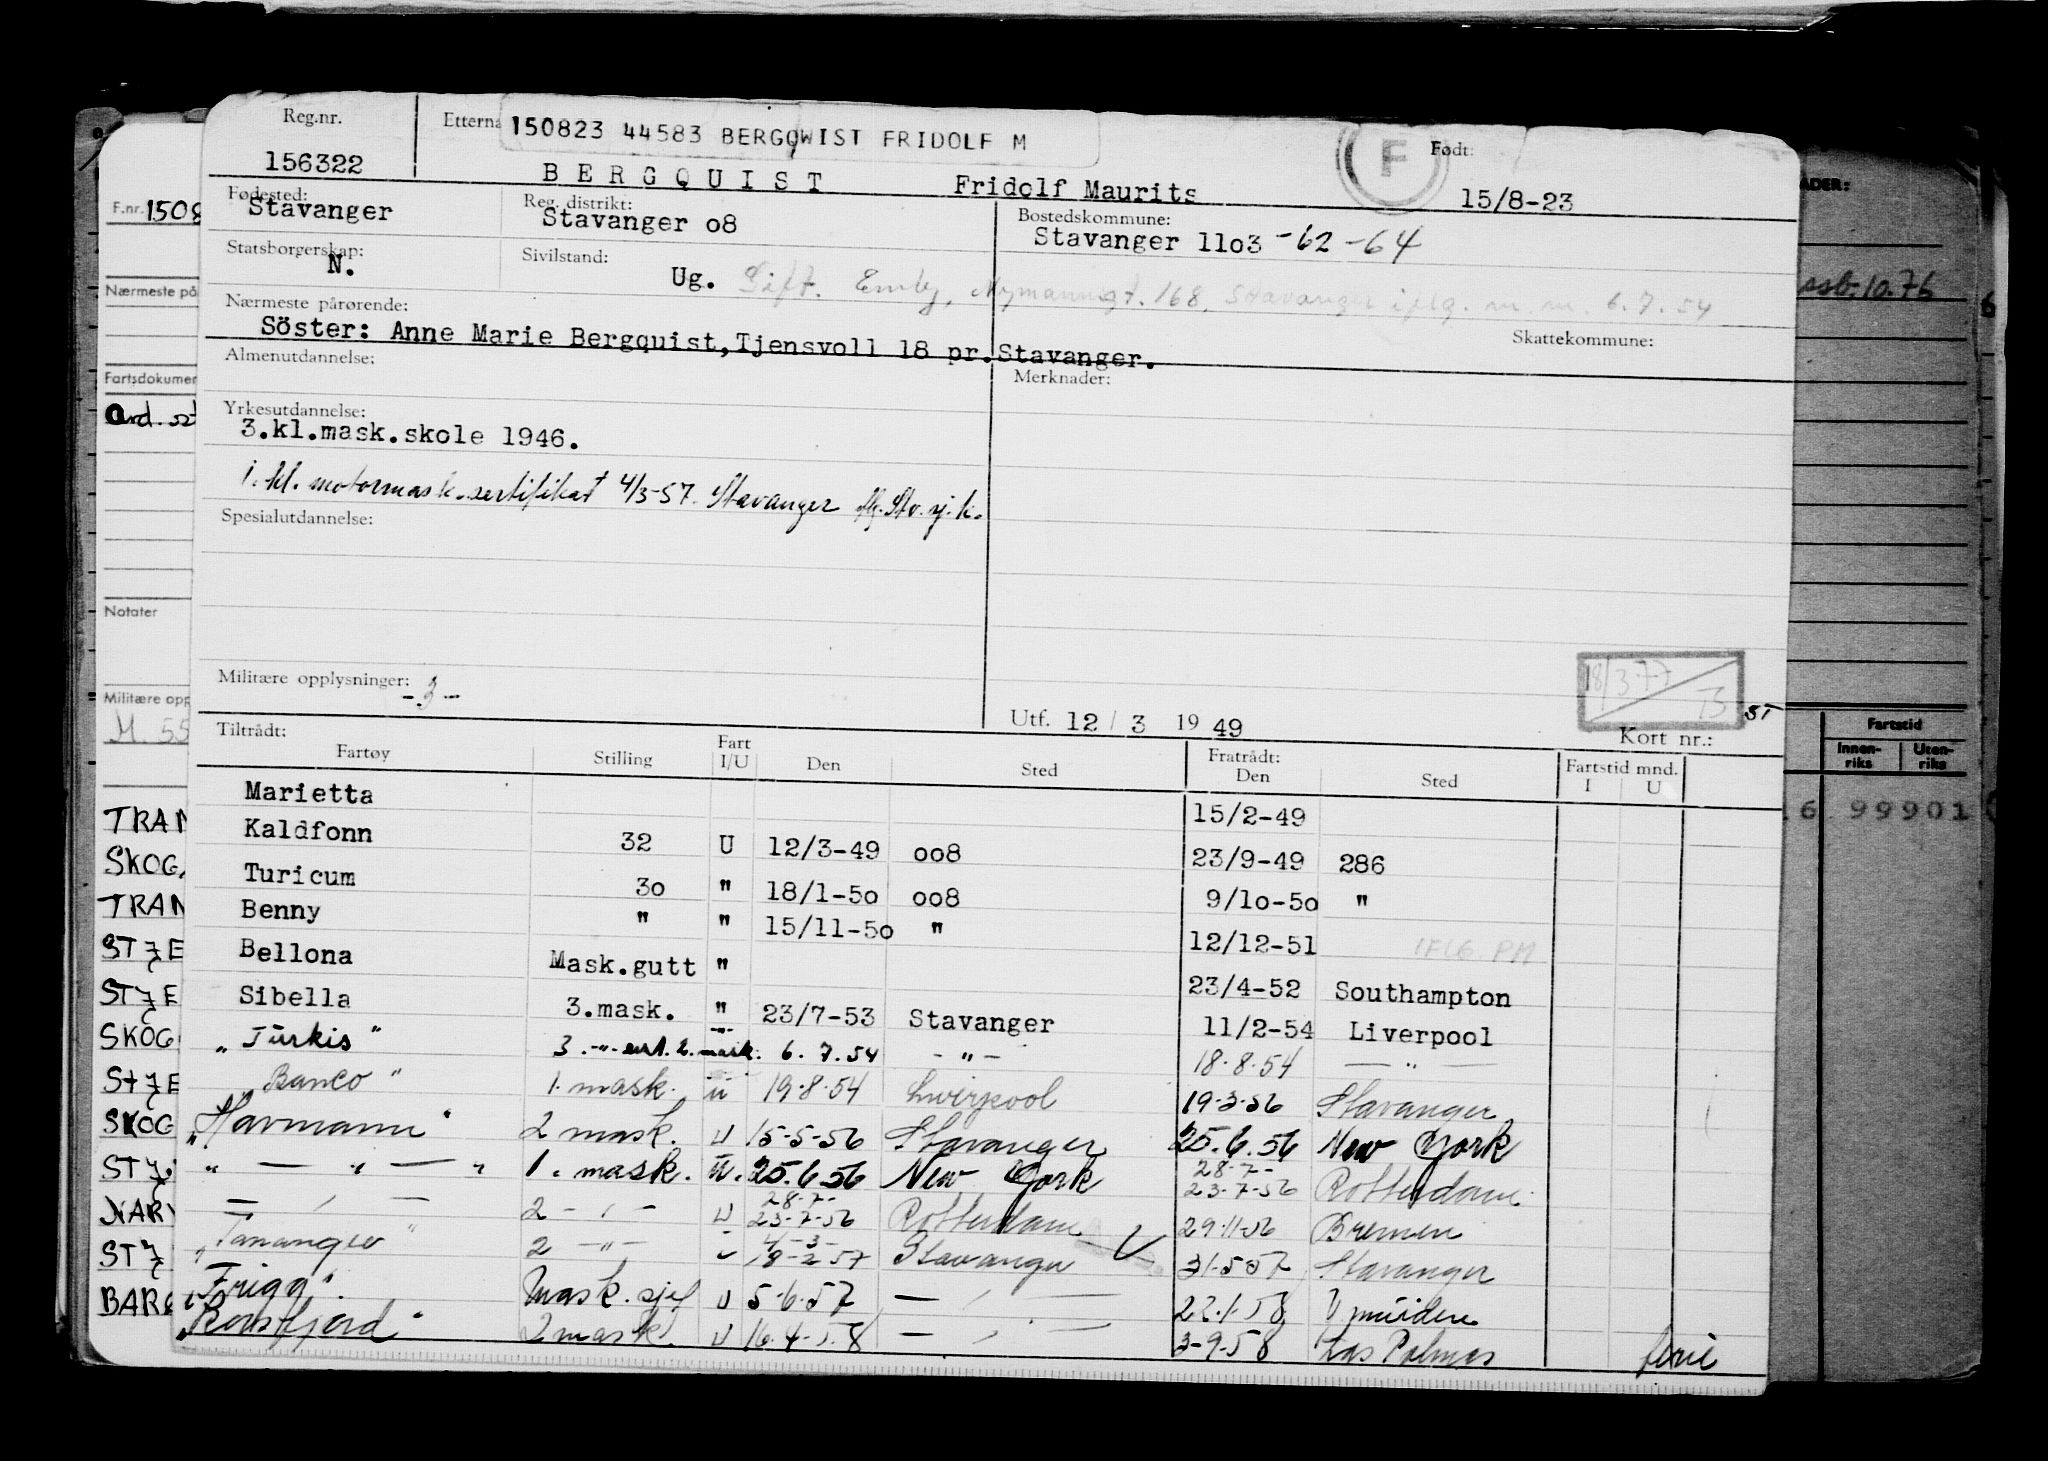 Reg.nr. Etterna 150823 44583 BERGQWIST FRIDOLF M F Født:
156322 BERGQUIST Fridolf Maurits 15/8-23
Fødested: Reg. distrikt: Bostedskommune:
Stavanger Stavanger o8 Stavanger 11o3 -62 -64
Statsborgerskap: Sivilstand:
N. Ug. Gift. Emly, Nymannsgt. 168, Stavanger iflg. m.m. 6.7.54
Nærmeste pårørende: Skattekommune:
Söster: Anne Marie Bergquist,Tjensvoll 18 pr.Stavanger.
Almenutdannelse: Merknader:
Yrkesutdannelse:
3.kl.mask.skole 1946.
1. kl. motormask.sertifikat 4/3-57. Stavanger flg. Stv. sj. k.
Spesialutdannelse:
Militære opplysninger: -3-
18/3 77
ST
Utf. 12 / 3 19 49 Kort nr.:
Tiltrådt: Fratrådt:
Fartøy Stilling Fart I/U Den Sted Den Sted Fartstid mnd. I U
Marietta 15/2-49
Kaldfonn 32 U 12/3-49 oo8 23/9-49 286
Turicum 3o " 18/1-5o oo8 9/1o-5o "
Benny " " 15/11-5o " 12/12-51 IFLG. PM
Bellona Mask.gutt " 23/4-52 Southampton
Sibella 3.mask. " 23/7-53 Stavanger 11/2-54 Liverpool
"Türkis" 3.-"- sert. 2. mask. 6.7.54 -"- 18.8.54 — " —
"Banco" 1. mask. ü 19.8.54 Liverpool 19-3-56 Stavanger
"Havmann" 2 mask. U 15-5-56 Stavanger 25.6.56 New York
" — " — " 1. mask. U. 25.6.56 New York 28-7- 23-7-56 Rotterdam
— " — 2 -"- U 28-7- 23-7-56 Rotterdam 29-11-56 Bremen
"Tananger" 2 -"- U 4-3- 18-2-57 Stavanger 31-5-57 Stavanger
"Frigg" Mask. sjef U 5-6-57 — " — 22-1-58 Ymuiden
"Ross fjord" 2 mask. U 16.4-58 — " — 3-9-58 Las Palmas ferie
F.nr. 1508
Nærmeste på
Fartsdokumen
Ord. st
Notater
Militære opp
M. 55
TRAN
SKOG
TRAN
STJE
STJE
SKOG
STJE
SKOG
STJ
NARV
STJ
BAR
ADER:
ssb. 10.76
Fartstid
Innen-riks Uten-riks
16 99901